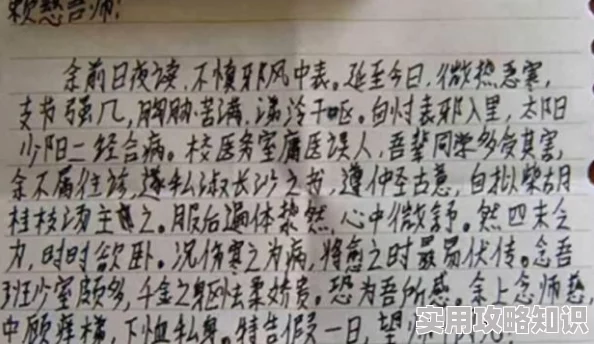 慈吾师:
余前日夜读,不慎邪风中表。延至今日,微热恶寒,
支节强几,胸胁苦满,涕冷干呕。自忖表邪入里,太阳
少阳二经合病。校医务室庸医误人,吾辈同学多受其害,
余不屑往诊,遂私淑长沙之书,遵仲圣古意,自拟柴胡
桂枝汤主之。服后遍体漐然,心中微舒。然四末乏
力,时时欲卧。况伤寒之为病,将愈之时最易伏传。念吾
班少室颇多,千金之躯怯柔娇贵。恐为吾所感。余上念师慈,
中顾庠梯,下恤私身。特告假一日,望
实用攻略知识